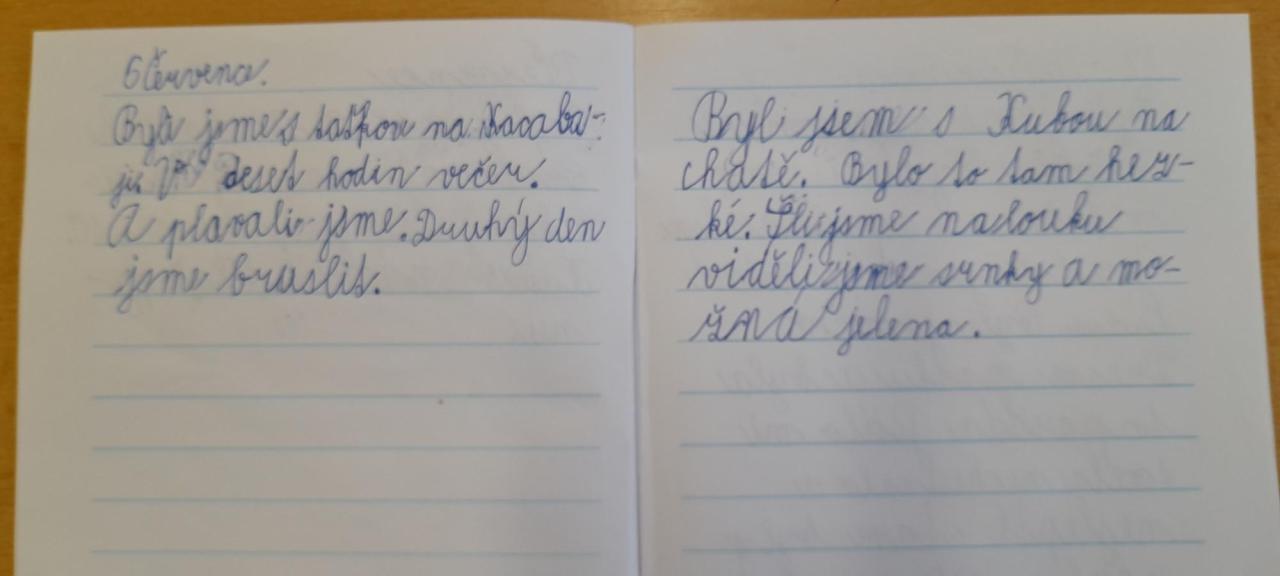 6 Července.
Byli jsme s taťkou na Kacaba-
je V deset hodin večer.
A plavali jsme. Druhý den
jsme bruslit.
Byl jsem s Kubou na
chatě. Bylo to tam hez-
ké. Šli jsme na louku
viděli jsme srnky a mo-
žná jelena.